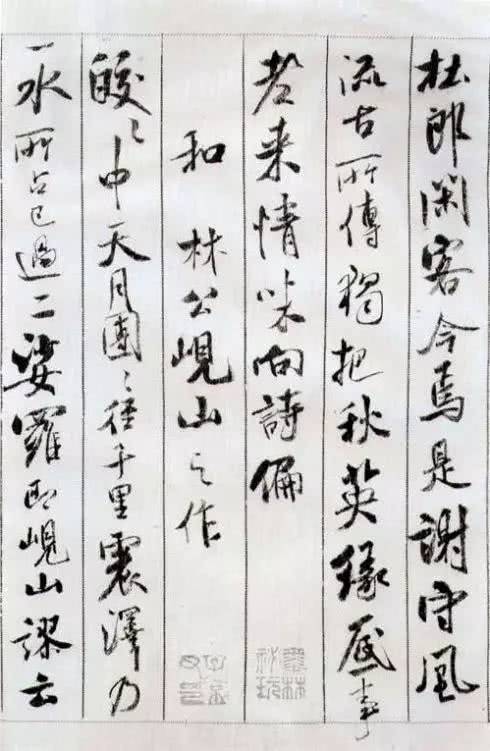 杜郎閑客今焉是謝守風
流古所傳獨把秋英緣底事
老来情味向詩偏
墨林秘玩
和林公峴山之作
皎〻中天月團〻徑千里震澤乃
一水所占已過二娑羅即峴山謬云